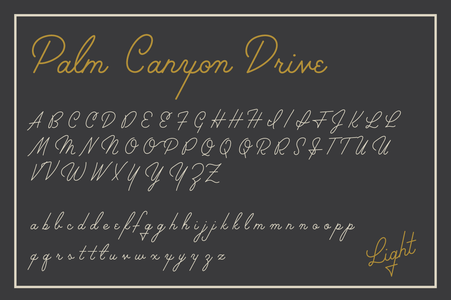 Palm Canyon Drive
A B C C D D E E F G H H H I J I J F J K L L
M M N N O O P P Q Q Q R R S S T T U U
V V W W X Y Y Y Y Z Z
a b b c d d e e f f g g h h i j j k k l m m r n n o o p p
q q r s t t t u v w x y y y z z
Light